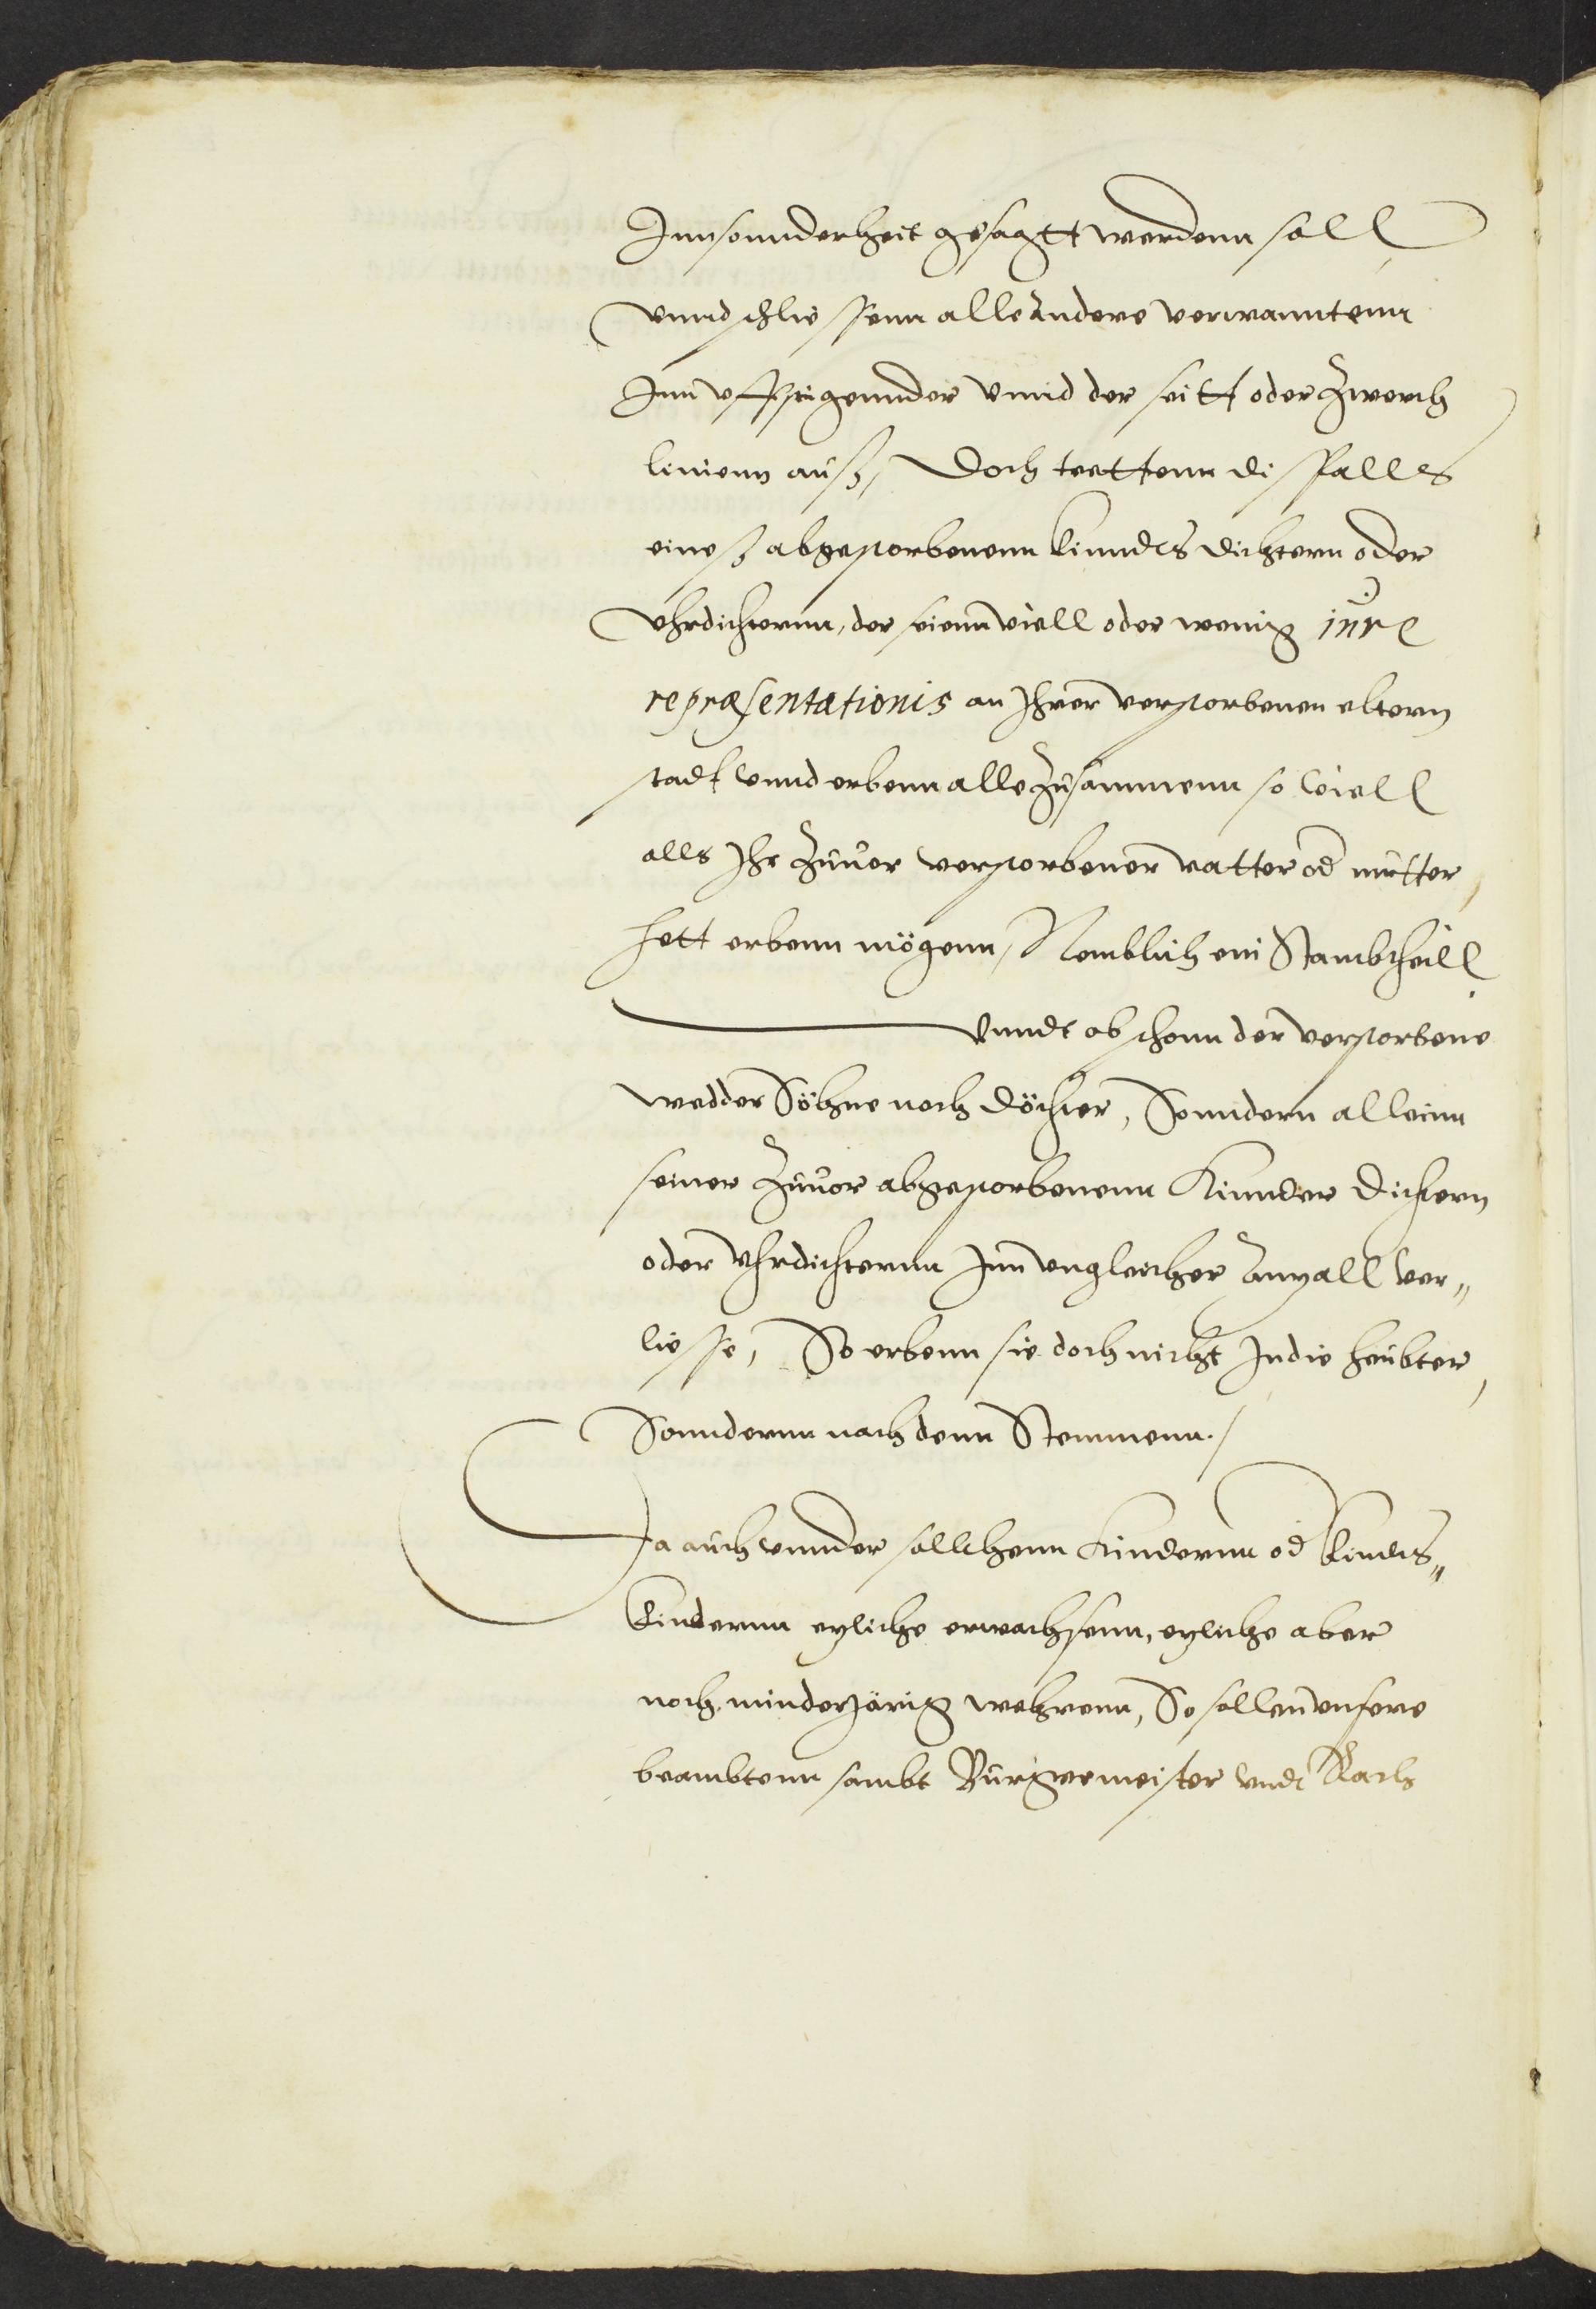 Innsonnderheit gesagtt werdenn soll
vnnd schliessenn alle andere verwanntenn
Inn vffsteigennder vnnd der seitt oder zwerch
linienn auß, Doch trettenn disfalls
eineß abgestorbenenn kinndts dichtern oder
Vhrdichternn, der seienn viell oder wenig iure
repræsentationis an Ihrer verstorbenen eltern
stadt vnnd erbenn alle zusammenn so viell
alls Ihr zuuor verstorbener vatter od mutter
hett erbenn mögenn, Nemblich ein Stambtheill
Vnndt ob schonn der verstorbene
wedder Söhne noch Döchter, Sonndern alleinn
seiner zuuor abgestorbenenn Kinnder Dichtern
oder Vhrdichternn Inn vngleicher Anzall ver„
liesse, So erbenn sie doch nicht In die heubter,
Sonndernn nach denn Stemmenn./
Da auch vnnder sollchenn Kindernn od kindts„
kindernn etzliche erwachsenn, etzliche aber
noch minderjärig wehrenn, So sollen vnsere
beambtenn sambt Bürgermeister vndt Rath